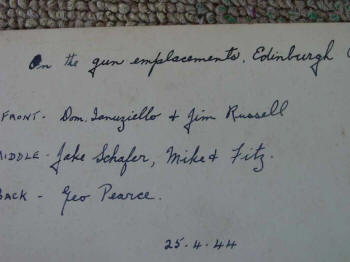 On the gun emplacements, Edinburgh (
FRONT - Dom. Ianuziello & Jim Russell
MIDDLE - Jake Schafer, Mike & Fitz.
BACK - Geo Pearce.
25-4-44